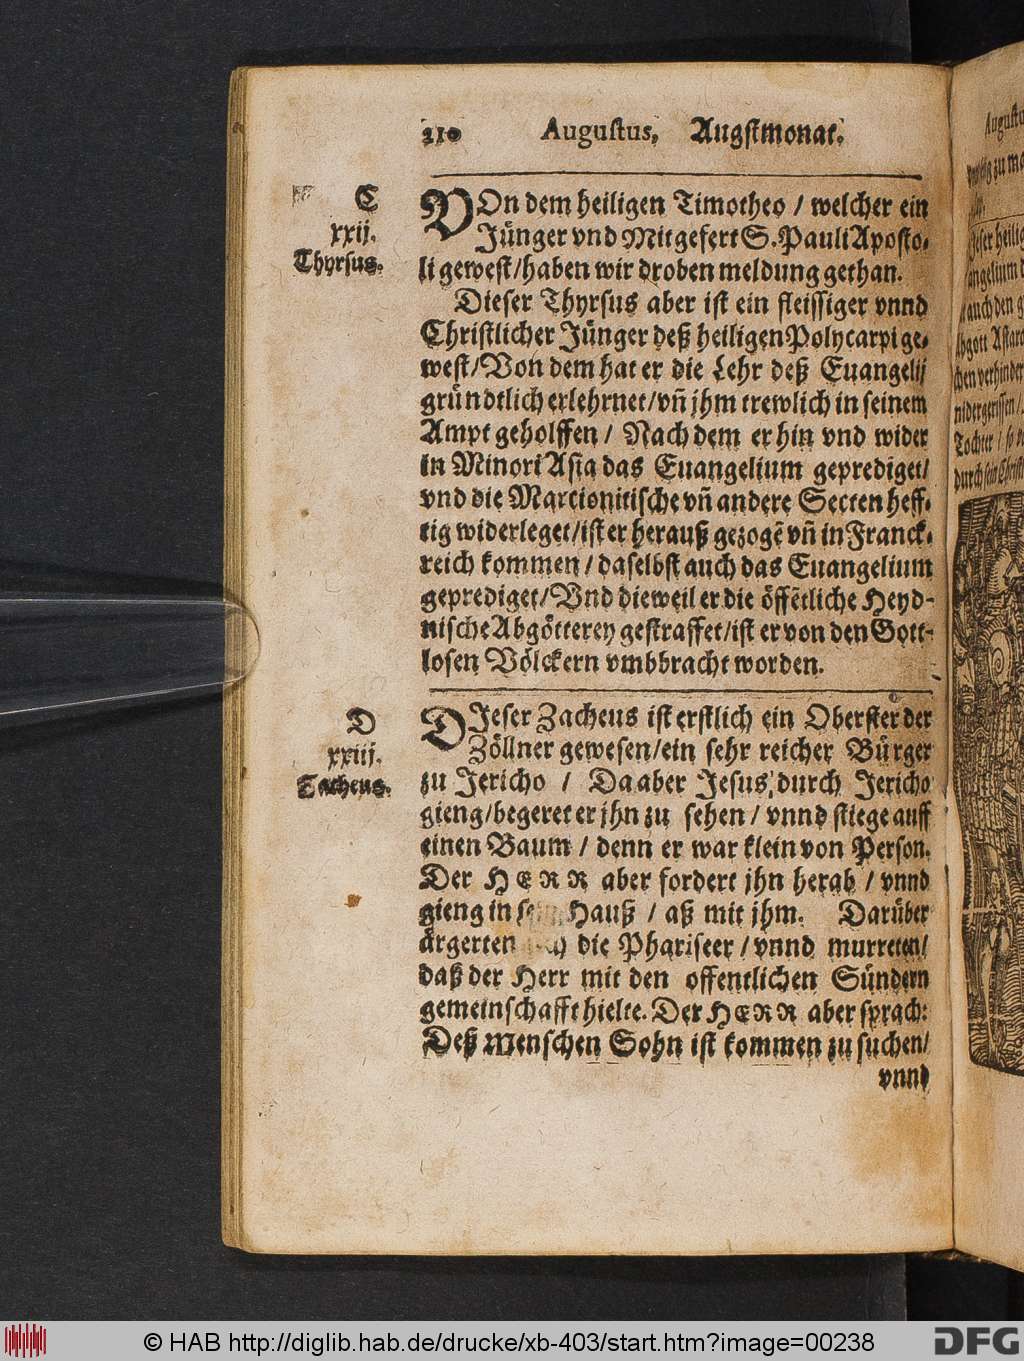 210 Augustus, Augstmonat.
C
xxij.
Thyrsus.
VOn dem heiligen Timotheo / welcher ein
Jünger vnd Mitgefert S. Pauli Aposto-
li gewest / haben wir droben meldung gethan.
Dieser Thyrsus aber ist ein fleissiger vnnd
Christlicher Jünger deß heiligen Polycarpi ge-
west / Von dem hat er die Lehr deß Euangelij
gründtlich erlehrnet / vñ jhm trewlich in seinem
Ampt geholffen / Nach dem er hin vnd wider
in Minori Asia das Euangelium geprediget /
vnd die Marcionitische vñ andere Secten heff-
tig widerleget / ist er herauß gezogẽ vñ in Franck-
reich kommen / daselbst auch das Euangelium
geprediget / Vnd dieweil er die öffẽtliche Heyd-
nische Abgötterey gestraffet / ist er von den Gott-
losen Völckern vmbbracht worden.
D
xxiij.
Zacheus.
DIeser Zacheus ist erstlich ein Oberster der
Zöllner gewesen / ein sehr reicher Bürger
zu Jericho / Da aber Jesus durch Jericho
gieng / begeret er jhn zu sehen / vnnd stiege auff
einen Baum / denn er war klein von Person.
Der HERR aber fordert jhn herab / vnnd
gieng in Hauß / aß mit jhm. Darüber
ärgerten die Phariseer / vnnd murreten /
daß der Herr mit den offentlichen Sündern
gemeinschafft hielte. Der HERR aber sprach:
Deß Menschen Sohn ist kommen zu suchen /
vnnd
© HAB http://diglib.hab.de/drucke/xb-403/start.htm?image=00238
DFG